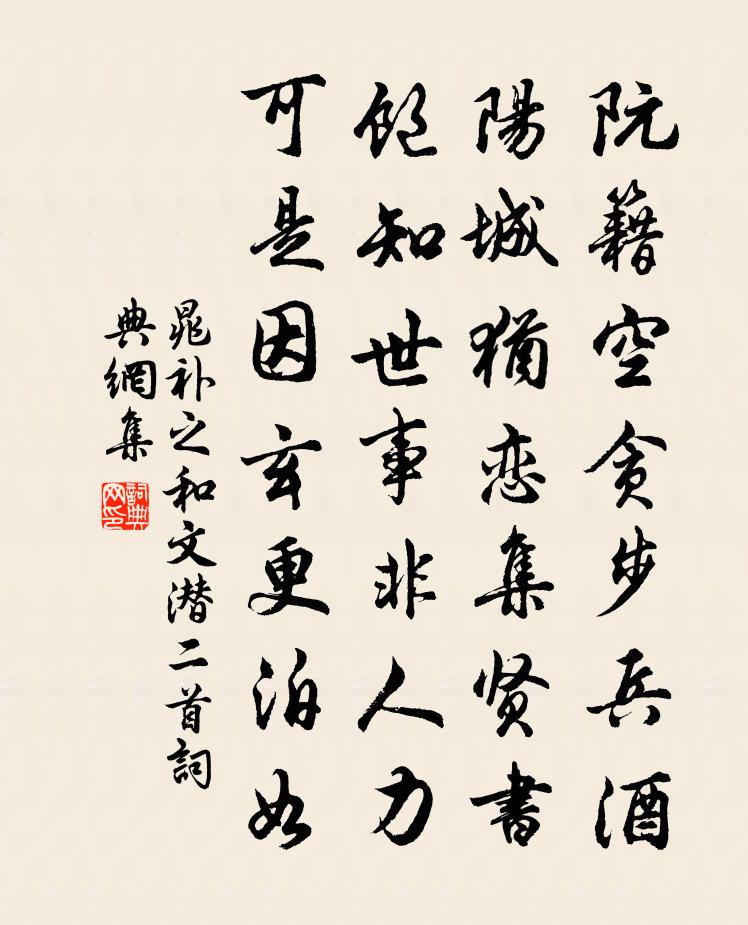 阮籍空贪步兵酒
陽城猶恋集贤書
飽知世事非人力
可是因玄更泊如
晁补之和文潜二首詞
典網集
詞典网印